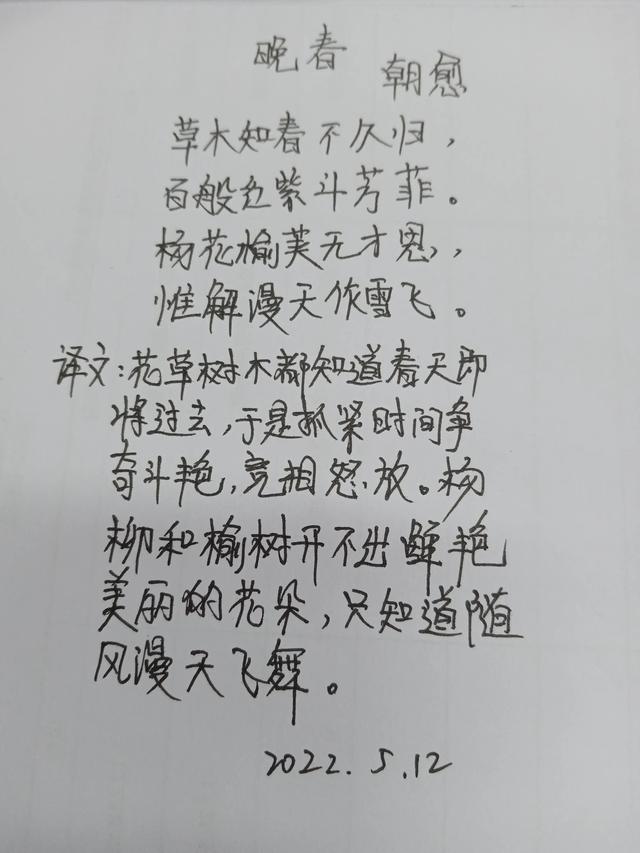 晚春
朝愈
草木知春不久归,
百般红紫斗芳菲。
杨花榆荚无才思,
惟解漫天作雪飞。
译文:花草树木都知道春天即
将过去,于是抓紧时间争
奇斗艳,竞相怒放。杨
柳和榆树开不出鲜艳
美丽的花朵,只知道随
风漫天飞舞。
2022.5.12